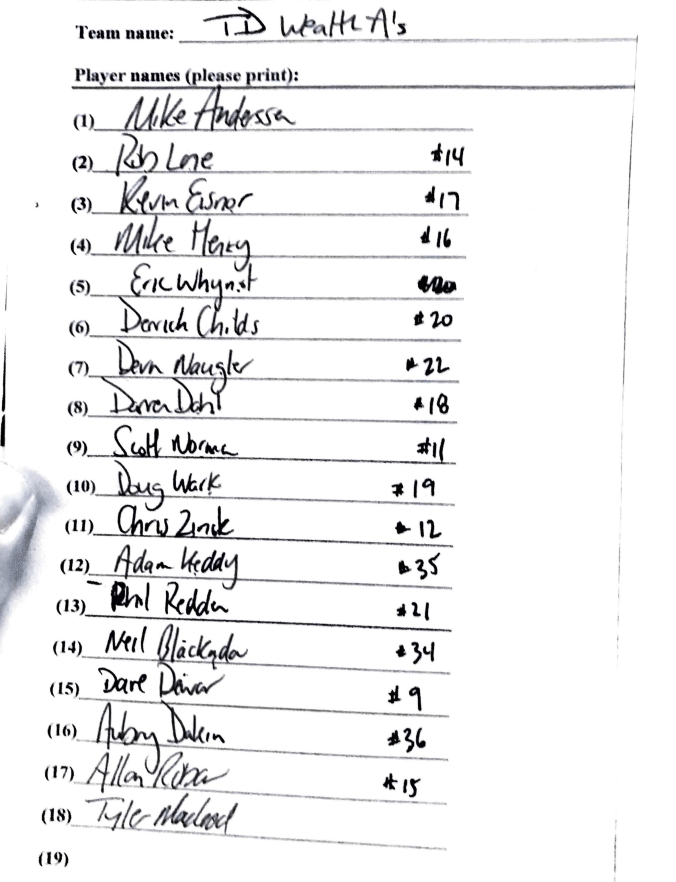 Team name: TD Wealth A's
Player names (please print):
(1) Mike Anderssen
(2) Rob Lane #14
(3) Kevin Eisnor #17
(4) Mike Henry #16
(5) Eric Whynot
(6) Derrick Childs #20
(7) Devn Naugler #22
(8) Darren Dahl #18
(9) Scott Norman #11
(10) Doug Wark #19
(11) Chris Zinck #12
(12) Adam Keddy #35
(13) Phil Redden #21
(14) Neil #34
(15) Dave #9
(16) Aubrey Dakin #36
(17) Allan #15
(18) Tyler Macleod
(19)